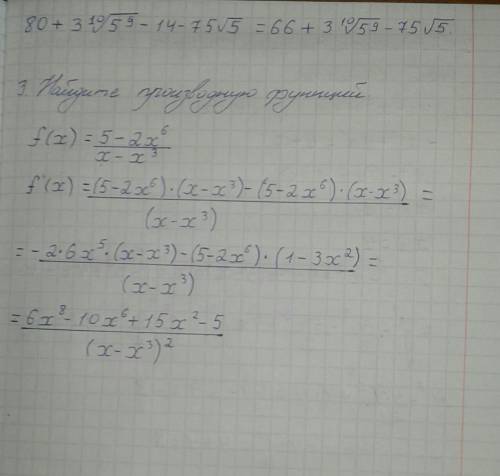 80 + 3 ¹⁰√5⁹ - 14 - 75√5 = 66 + 3 ¹⁰√5⁹ - 75√5.
3. Найдите производную функций
f(x) = (5 - 2x⁶)/(x - x³)
f'(x) = ((5 - 2x⁶)·(x - x³) - (5 - 2x⁶)·(x - x³))/(x - x³) =
= (-2·6x⁵·(x - x³) - (5 - 2x⁶)·(1 - 3x²))/(x - x³) =
= (6x⁸ - 10x⁶ + 15x² - 5)/(x - x³)²